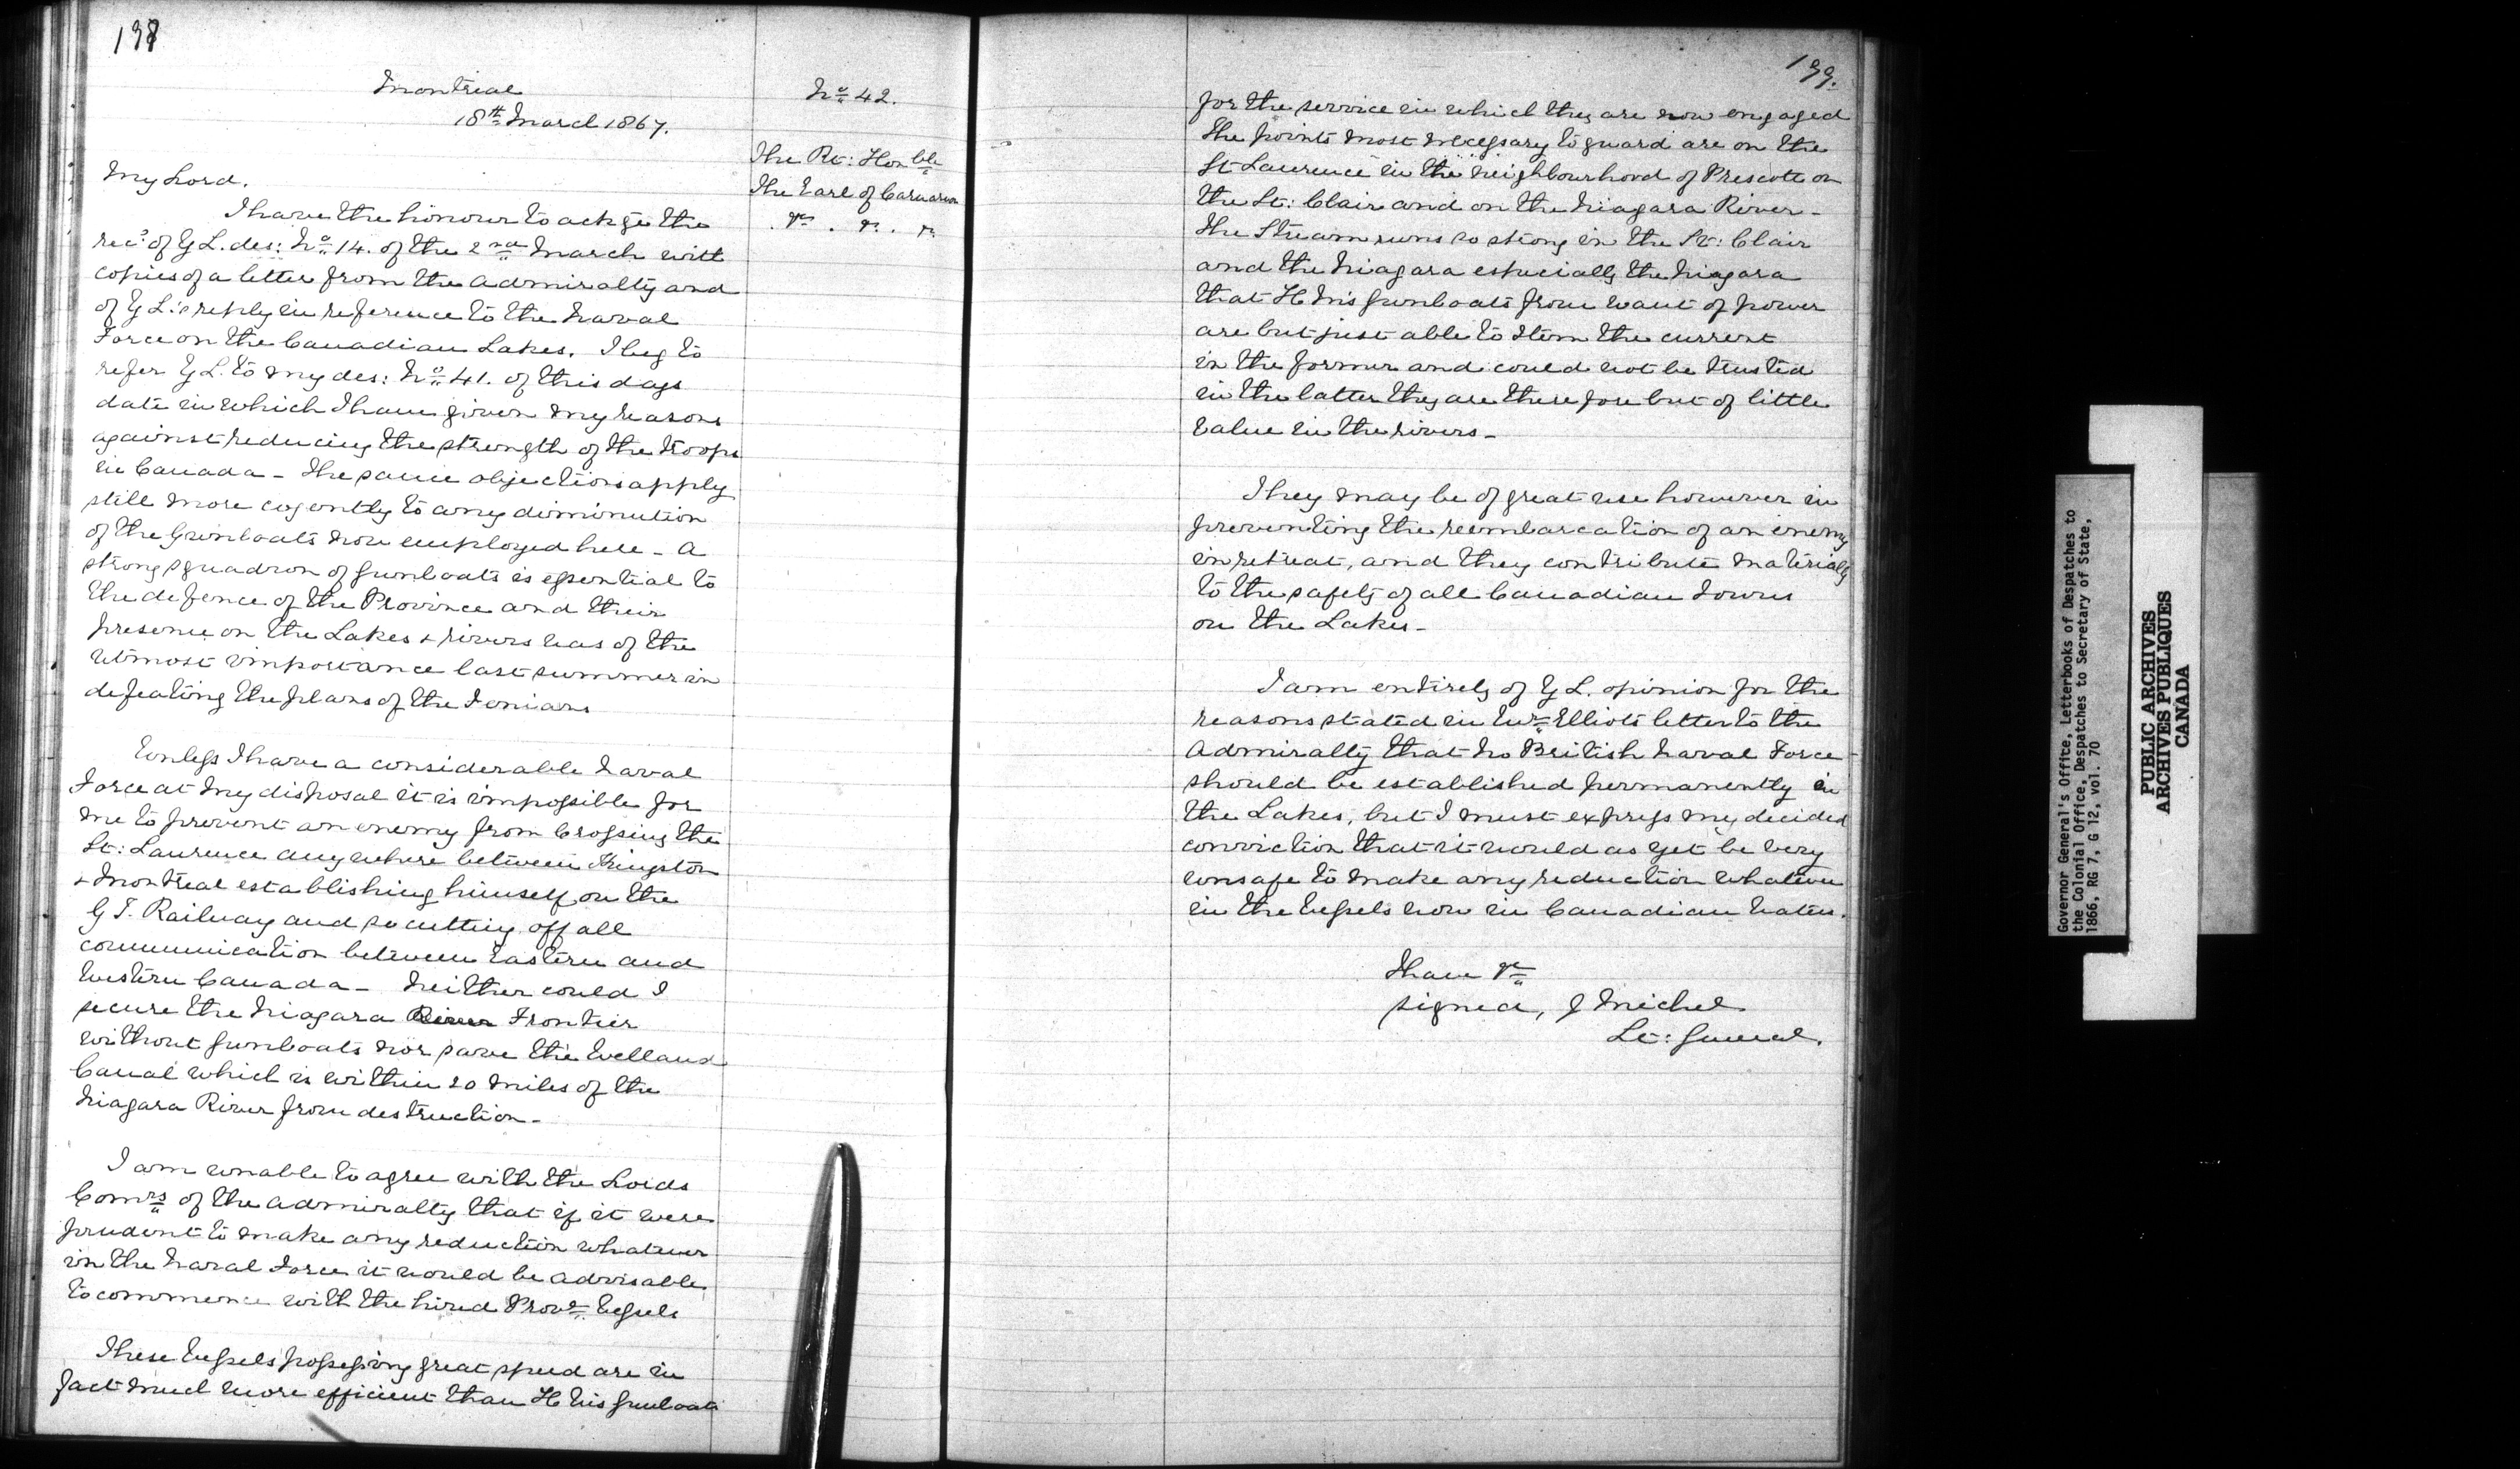 198
Montreal
18th March 1867.
No 42.
The Rt: Honble
The Earl of Carnarvon
My Lord.
I have the honour to ackge the
rec: of Y L. des: No 14. of the 2nd March with
copies of a letter from the Admiralty and
of Y L:s reply in reference to the Naval
Force on the Canadian Lakes. I beg to
refer Y L. to my des: No 41. of this days
date in which I have given my reasons
against reducing the strength of the troops
in Canada - The same objections apply
still more cogently to any diminution
of the Gunboats now employed here - A
strong squadron of gunboats is essential to
the defence of the Province and their
presence on the Lakes & rivers was of the
utmost importance last summer in
defeating the plans of the Fenians
Unless I have a considerable Naval
Force at my disposal it is impossible for
me to prevent an enemy from crossing the
St: Laurence anywhere between Kingston
& Montreal establishing himself on the
G T. Railway and so cutting off all
communication between Eastern and
Western Canada - Neither could I
secure the Niagara River Frontier
without gunboats nor save the Welland
Canal which is within 20 miles of the
Niagara River from destruction -
I am unable to agree with the Lords
Comrs of the Admiralty that if it were
prudent to make any reduction whatever
in the Naval Force it would be advisable
to commence with the hired Provl Vessels
These Vessels possessing great speed are in
fact much more efficient than H M's gunboats
199.
for the service in which they are now engaged
The points most necessary to guard are on the
St Laurence in the neighbourhood of Prescott on
the St: Clair and on the Niagara River -
The Stream runs so strong in the St: Clair
and the Niagara especially the Niagara
that H M's gunboats from want of power
are but just able to stem the current
in the former and could not be trusted
in the latter they are therefore but of little
value in the rivers -
They may be of great use however in
preventing the reembarcation of an enemy
in retreat, and they contribute materially
to the safety of all Canadian Towns
on the Lakes -
I am entirely of Y L. opinion for the
reasons stated in Elliots letter to the
Admiralty that no British Naval Force
should be established permanently in
the Lakes, but I must express my decided
conviction that it would as yet be very
unsafe to make any reduction whatever
in the Vessels now in Canadian Waters.
I have &c
signed, J Michel
Lt: General.
Governor General's Office, Letterbooks of Despatches to
the Colonial Office, Despatches to Secretary of State,
1866, RG 7, G 12, vol. 70
PUBLIC ARCHIVES
ARCHIVES PUBLIQUES
CANADA